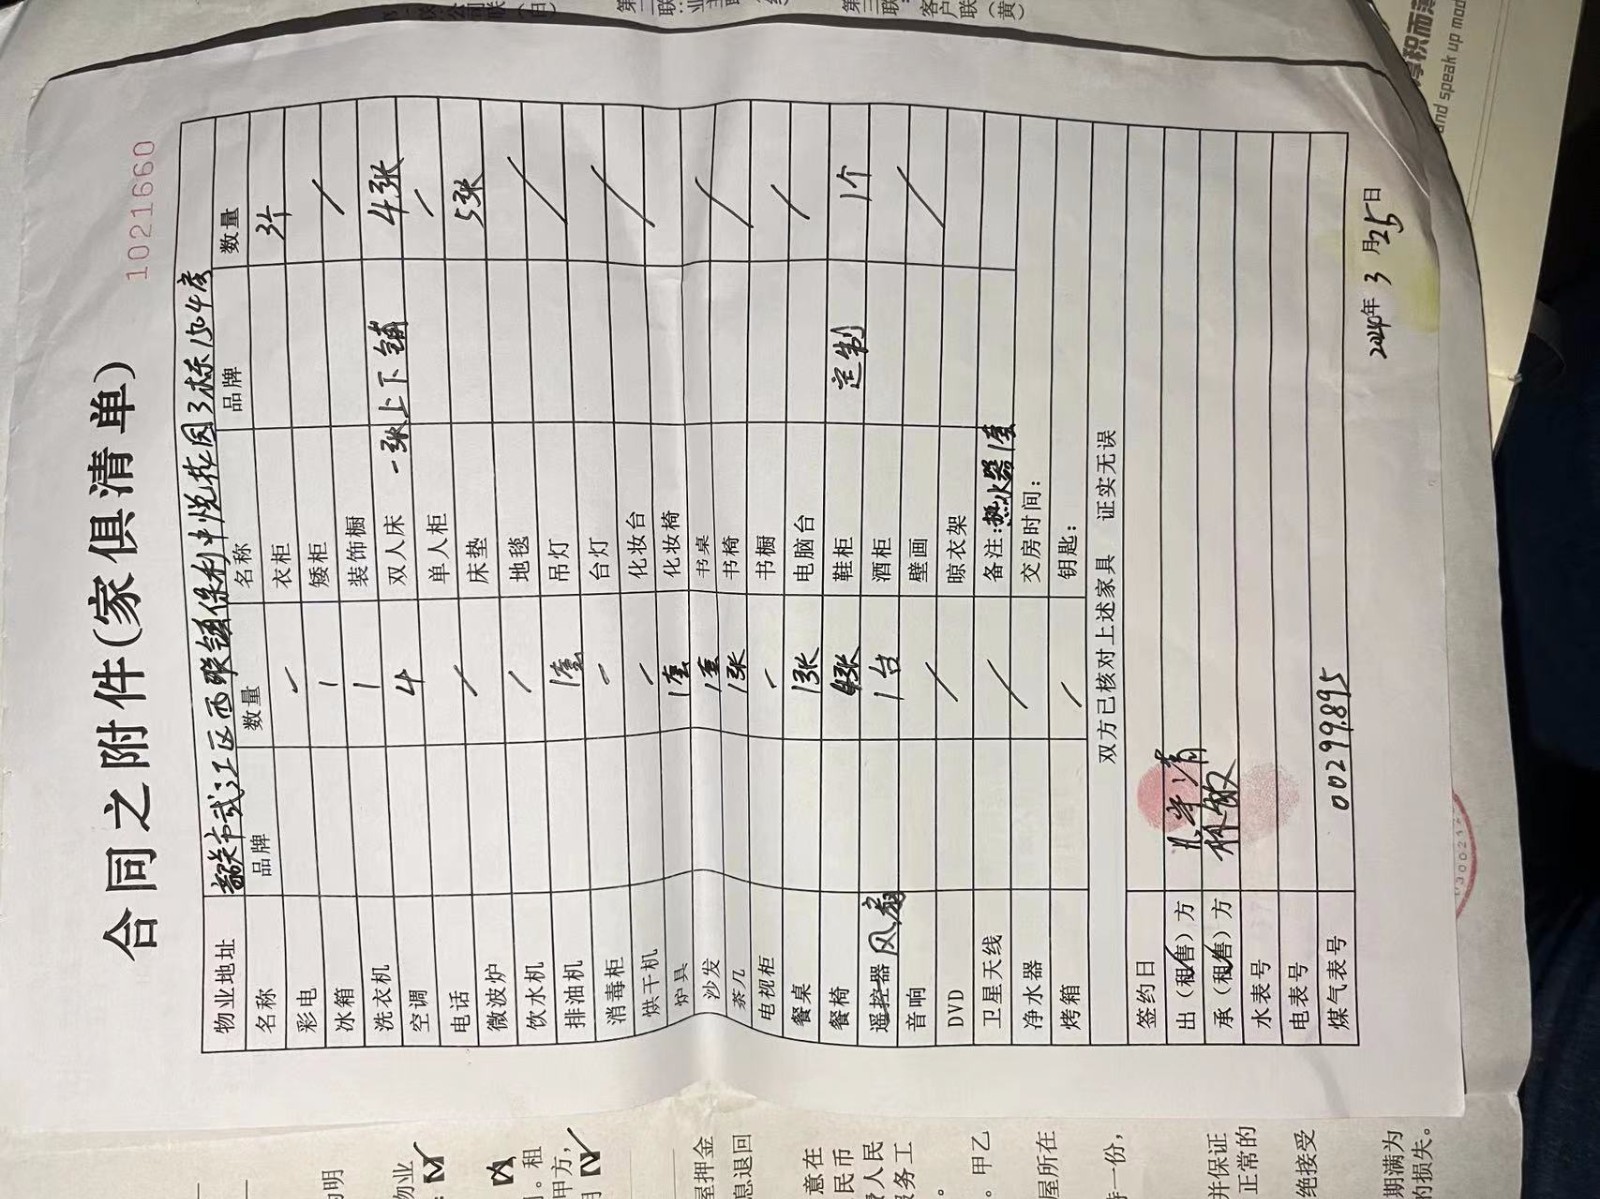 1021660
合同之附件(家俱清单)
物业地址 韶关市武江区西联镇保利中悦花园3栋1504房
名称 品牌 数量 名称 品牌 数量
彩电 / 衣柜 3个
冰箱 / 矮柜 /
洗衣机 / 装饰橱
空调 4 双人床 一张上下铺 4张
电话 / 单人柜 /
微波炉 / 床垫 5张
饮水机 地毯 /
排油机 1套 吊灯
消毒柜 / 台灯 /
烘干机 / 化妆台
炉具 1套 化妆椅
沙发 1套 书桌 /
茶几 1张 书椅
电视柜 / 书橱
餐桌 1张 电脑台 /
餐椅 4张 鞋柜 定制 1个
遥控器 风扇 1台 酒柜
音响 / 壁画 /
DVD 晾衣架
卫星天线 / 备注:热水器1套
净水器 交房时间:
烤箱 / 钥匙:
双方已核对上述家具 证实无误
签约日
出(租售)方
承(租售)方
水表号
电表号
煤气表号 00299895
2024年3月25日